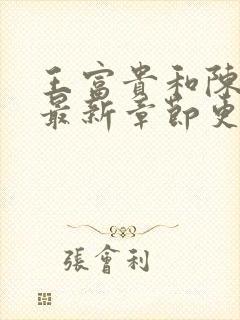 王富貴和陳
最新章節史
張會利